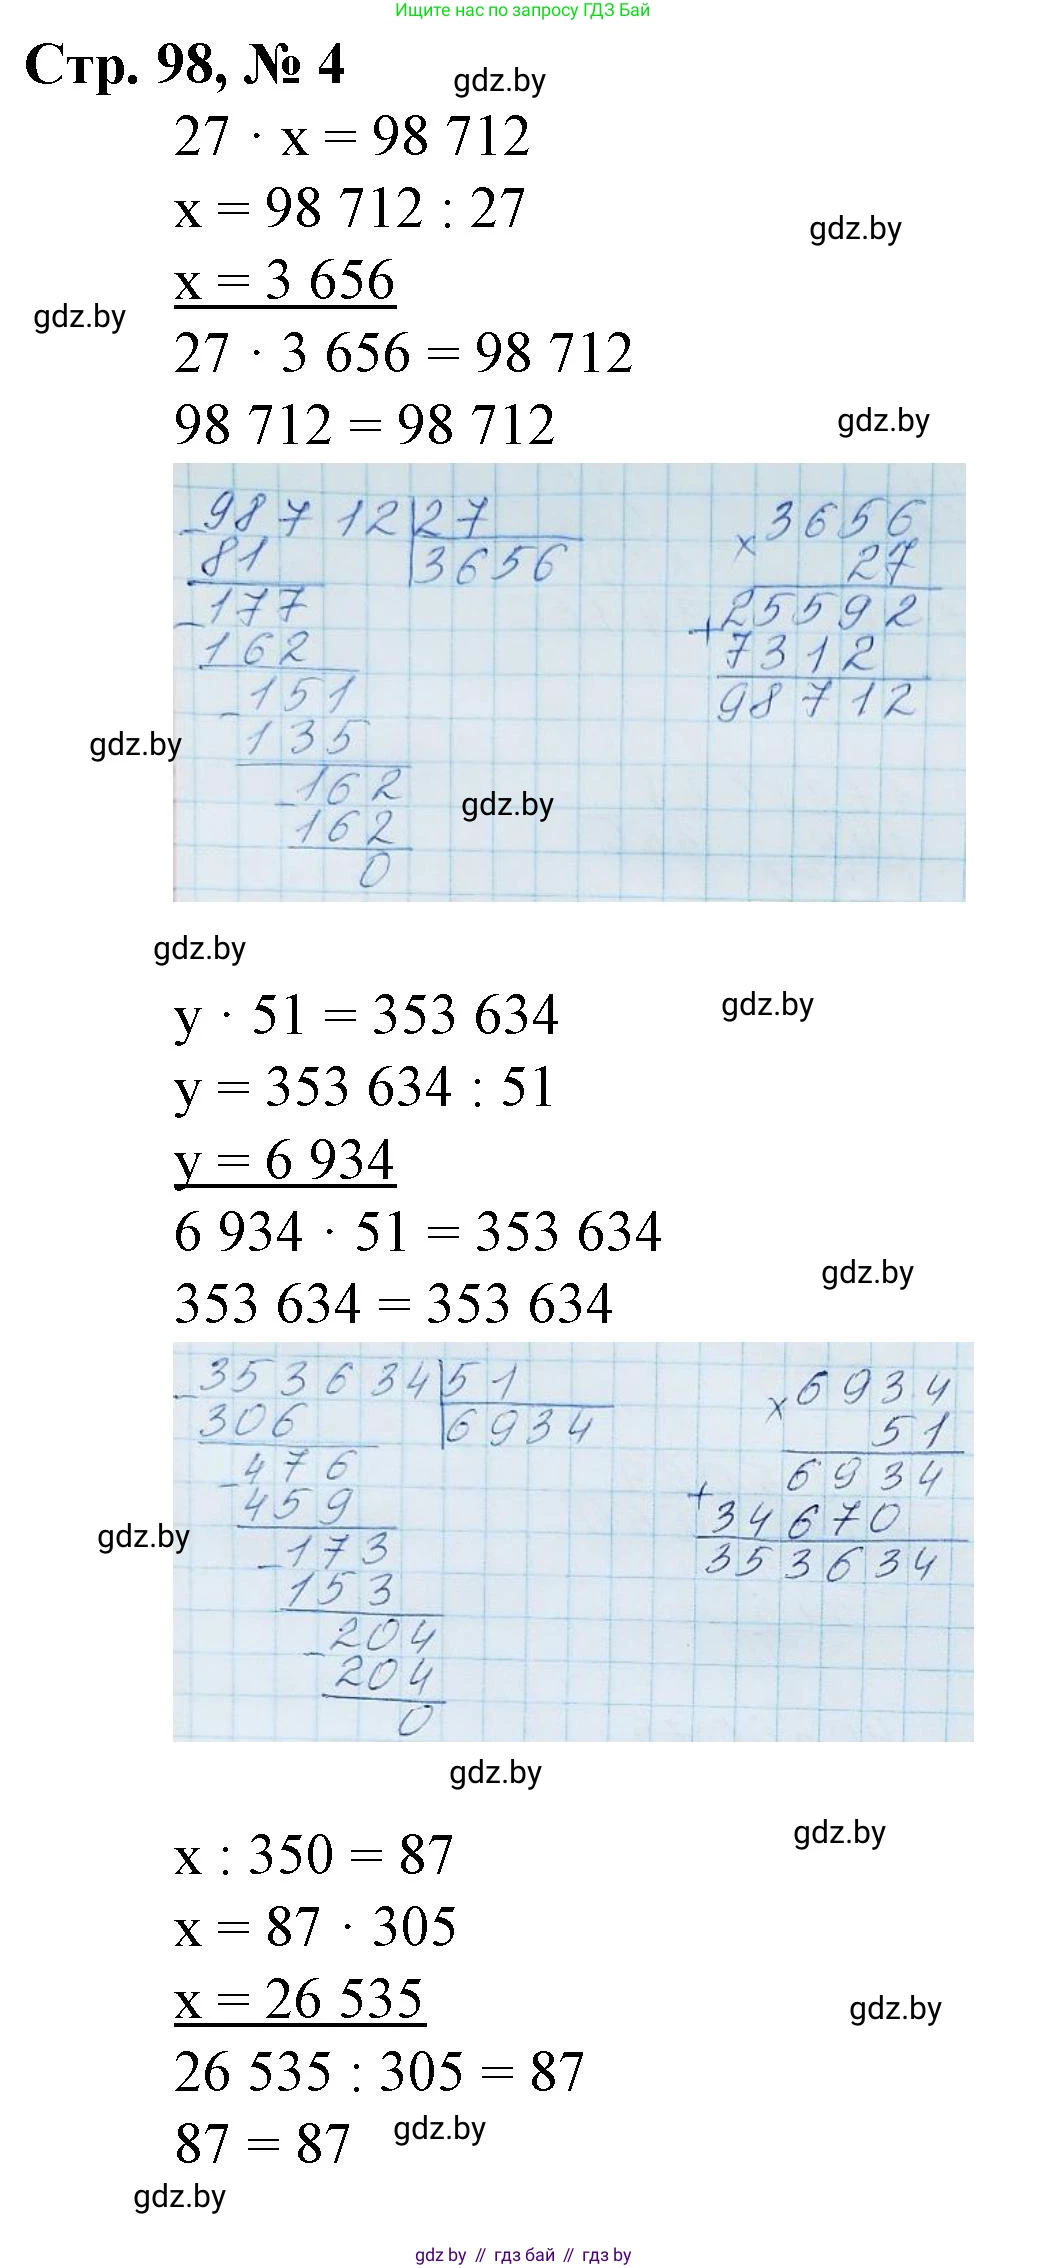 Ищите нас по запросу ГДЗ Бай
Стр. 98, № 4
gdz.by
27 · x = 98 712
x = 98 712 : 27
gdz.by
x = 3 656
gdz.by
27 · 3 656 = 98 712
98 712 = 98 712
gdz.by
- 98712 | 27
81 | 3656
- 177
162
- 151
135
- 162
162
0
x 3656
27
25592
+ 7312
98712
gdz.by
gdz.by
gdz.by
y · 51 = 353 634
gdz.by
y = 353 634 : 51
y = 6 934
6 934 · 51 = 353 634
gdz.by
353 634 = 353 634
- 353634 | 51
306 | 6934
- 476
459
- 173
153
- 204
204
0
x 6934
51
6934
+ 34670
353634
gdz.by
gdz.by
gdz.by
x : 350 = 87
x = 87 · 305
x = 26 535
gdz.by
26 535 : 305 = 87
87 = 87
gdz.by
gdz.by
gdz by // гдз бай // гдз by